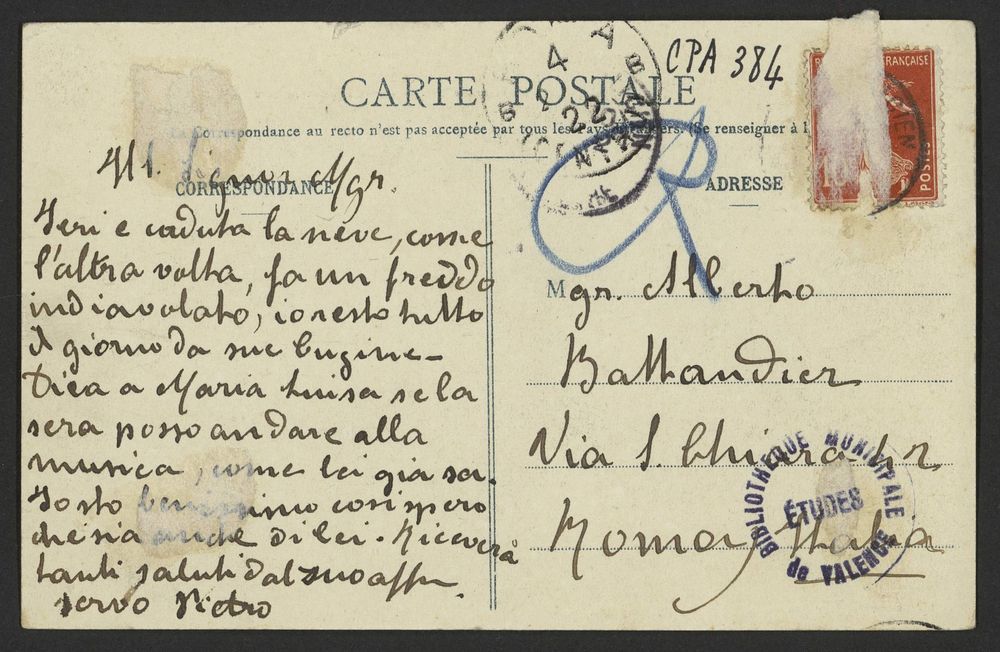 CPA 384
CARTE POSTALE
La Correspondance au recto n'est pas acceptée par tous les Pays étrangers. (Se renseigner à la
CORRESPONDANCE
ADRESSE
Ill. Signor Mgr.
Ieri e caduta la neve, come
l'altra volta, fa un freddo
indiavolato, io resto tutto
il giorno da mie Cugine-
Dica a Maria Luisa se la
sera posso andare alla
musica, come lei gia sa.
Io sto benissimo cosi spero
che sia anche di lei. Riceverà
tanti saluti dal suo affmo
servo Pietro
Mgr. Alberto
Battandier
Via S. Chiara 42
Roma, Italia
BIBLIOTHÈQUE MUNICIPALE
ÉTUDES
de VALENCE
FRANÇAISE
POSTES